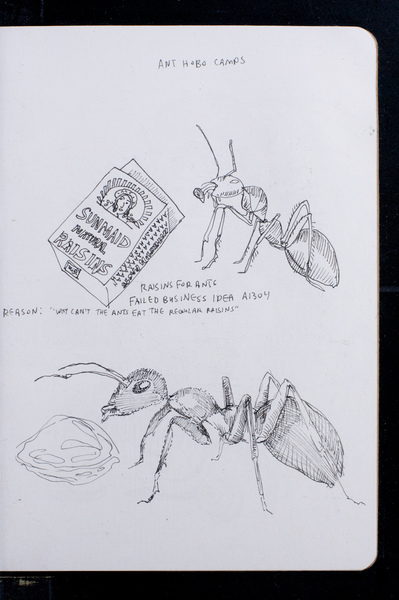 ANT HOBO CAMPS
SUNMAID
NATURAL
RAISINS
RAISINS FOR ANTS
FAILED BUSINESS IDEA A1304
REASON: "WHY CAN'T THE ANTS EAT THE REGULAR RAISINS"